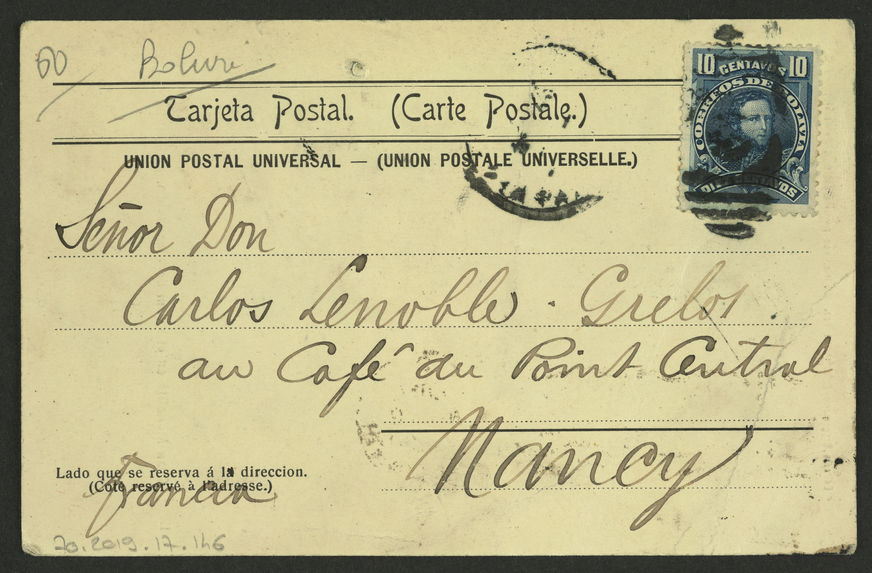 60
Tarjeta Postal. (Carte Postale.)
UNION POSTAL UNIVERSAL — (UNION POSTALE UNIVERSELLE.)
10 CENTAVOS 10
CORREOS DE BOLIVIA
DIEZ CENTAVOS
Señor Don
Carlos Lenoble. Grelot
au Café du Point Central
Nancy
Lado que se reserva á la direccion.
(Coté reservé à l'adresse.)
Francia
70.2019.17.146